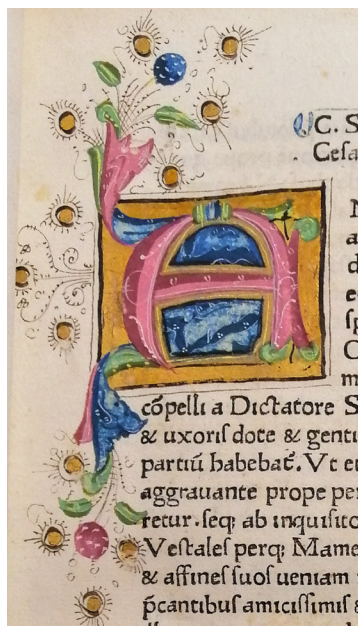 C. S
Ceſa
A
N
a
d
e
ſp
C
m
cõpelli a Dictatore S
& uxoriſ dote & genti
partiũ habebat̃. Vt et
aggrauante prope per
retur. ſeq; ab inquiſito
Veſtaleſ perq; Mame
& affineſ ſuoſ ueniam
p̃cantibuſ amiciſſimiſ &